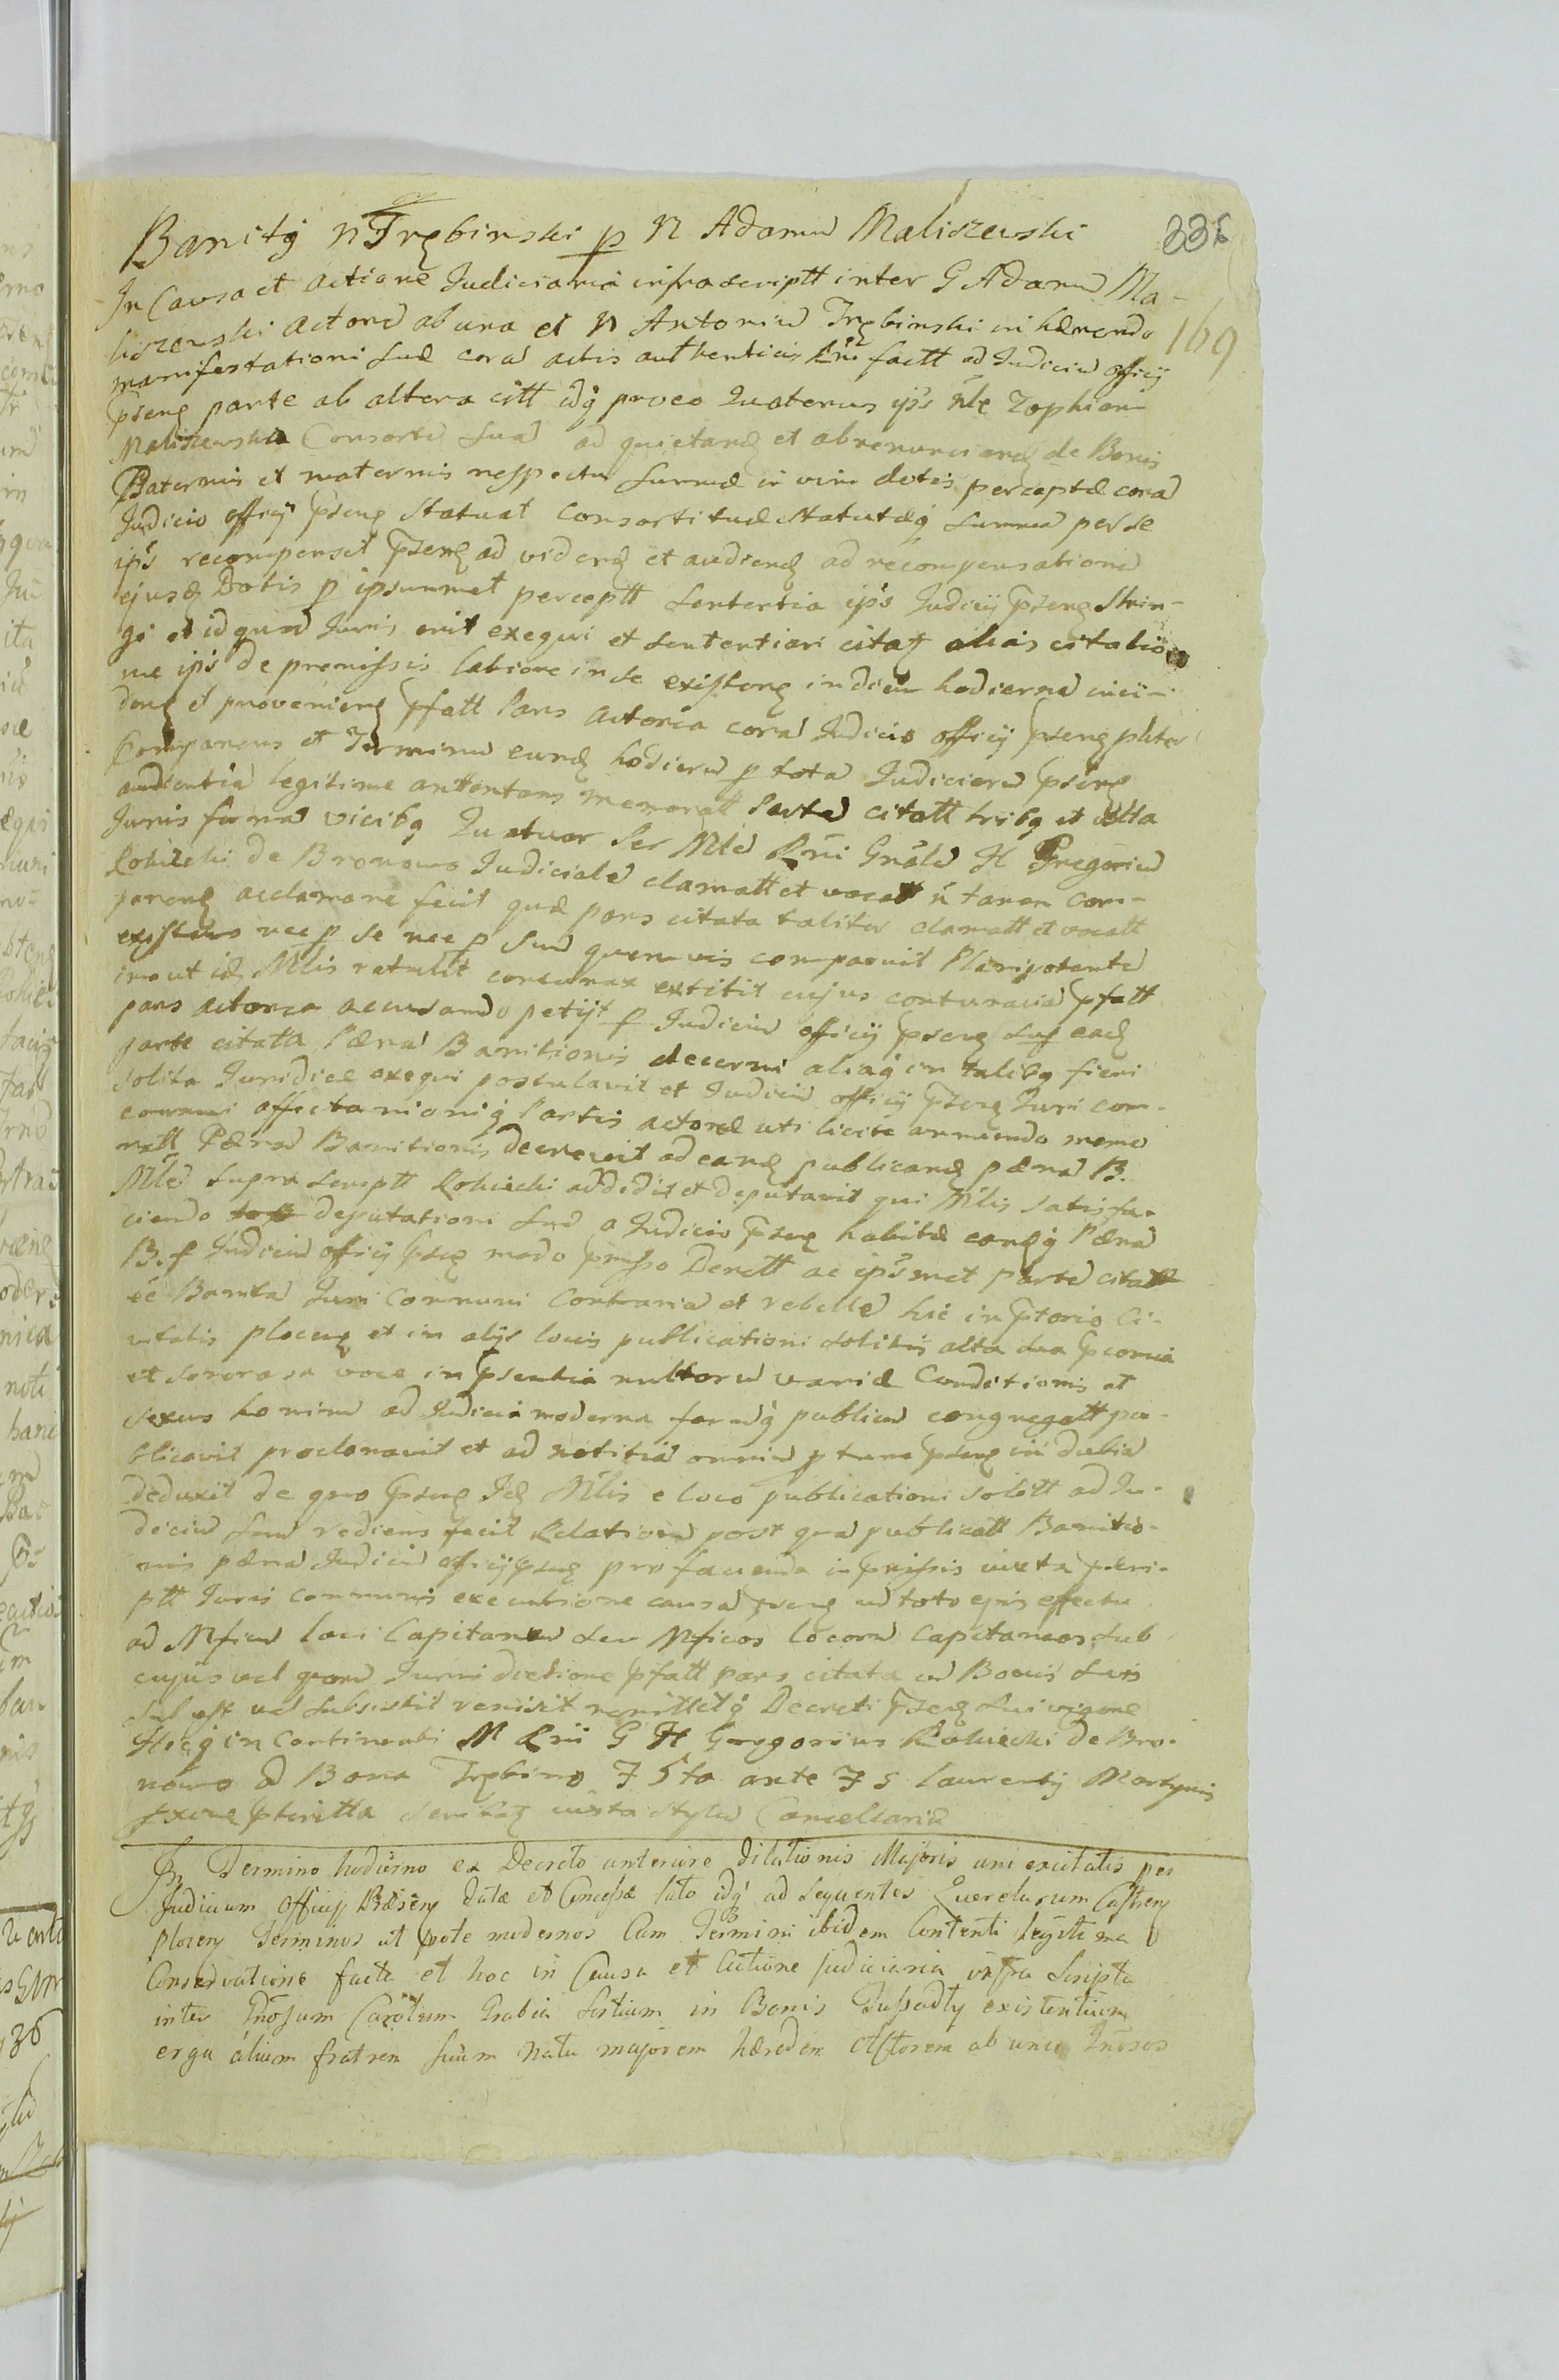 Banitꝫ N Trębinski p N Adamū Maliszewski
336
In Causa et actione Judiciaria infrascriptt inter G Adamū Ma-
liszewski Actorē ab una et N Antoniū Trębinski in hærendo
169
manifestationi suæ corā actis authenticis Rñi factt ad Judiciū officij
pseng parte ab altera citt idq́ proeo Quatenus ip̄s Nlę Zophiam
Maliszewska Consortē suā ad quietandꝫ et abrenunciandꝫ de Bonis
Paternis et maternis respectu summæ in vim dotis perceptæ corā
Judicio officij pseng Statuat Consorti tuæ statutæq́ summā per se
ip̄s recompenset pseng ad videndꝫ et audiendꝫ ad recompensationē
ejusdꝫ Dotis p ipsummet perceptt sententia ip̄s Judicij pseng Strin-
gi et id quid Juris erit exequi et sententiari citatꝫ alias citatio
ne ip̄s de premissis latiore in se existeng in diem hodiernā inci-
deng et provenieng pfatt Pars Actorea corā Judicio officij pseng pliter
Comparens et Terminū eundꝫ hodiernū p tota Judiciorū pseng
audientiā legitime attentans memoratt Partē citatt tribꝫ et ulta
Juris formā vicibꝫ Quatuor Per Mlē Rñi Gnālē H Gregoriū
Rokicki de Bronowo Judicialē clamatt et vocatt ń tamen com-
pareng acclamare fecit quæ pars citata taliter clamatt et vocatt
existens nec p se nec p suū quemvis comparuit Plenipotentē
imo ut idꝫ Mlis retulit contumax extitit cujus contumaciā pfatt
pars actorea accusando petijt p Judiciū officij pseng sup eadꝫ
parte citatta Pænā Banitionis decerni aliaq́ in talibꝫ fieri
solita Juridice exequi postulavit et Judiciū officij pseng Juri com-
muni affectationiq́ Partis actoreæ uti licitæ annuendo memo
ratt Pænā Banitionis decrevit ad eandꝫ publicandꝫ pænā B.
Mlē supra scriptt Rokicki addidit et deputavit qui Mlis satisfa-
ciendo deputationi suæ a Judicio pseng habitæ eandꝫq́ Pænā
B. p Judiciū officij pseng modo pmisso Decrett ac ip̄smet partē citatt
eē Banitā Juri Communi Contrariā et rebellē hic in ptorio Ci-
vitatis ploceng et in alijs locis publicationi solitis alta sua pconia
et sonorosa voce in psentia multorū variæ Conditionis et
sexus hominū ad Judicia moderna forūq́ publicū congregatt pu-
blicavit proclamavit et ad notitiā omniū p tunc pseng in dubiā
deduxit de quo pseng Idꝫ Mlis e loco publicationi solitt ad Ju-
diciū suū rediens fecit Relationē post quā publicatt Banitio-
nis pænā Judiciū officij pseng pro facienda in pmissis iuxta pscri-
ptt Juris communis executione causā pseng cū toto ejus effectu
ad Mficū loci Capitaneū seu Mficos locorū Capitaneos sub
cujus vel quorū Jurisdictione pfatt pars citata cū Bonis suis
sub est vel subsistit remisit remittitq́ Decreti pseng sui vigore
Hicq́ in Continenti M Rñi G H Gregorius Rokicki de Bro-
nowo ad Bona Trębino F 5ta ante F S Laurentij Martyris
pteritta servatꝫ iuxta stylū Cancellariæ
In Termino hodierno ex Decreto anteriore dilationis Majoris uni excitatis per
Judicium Officij Præseng datæ et Concessæ lato idq́ ad sequentes Querelarum Castreng
Ploceng Terminos ut pote modernos Cum Termini ibidem Contenti legitima
Conservatione facta et hoc in Causa et Actione Judiciaria infra Scripta
inter Gnosum Carolum Grabia sortium in Bonis existentium
erga alium fratrem suum natu majorem hæredem Actorem ab una Gnosos